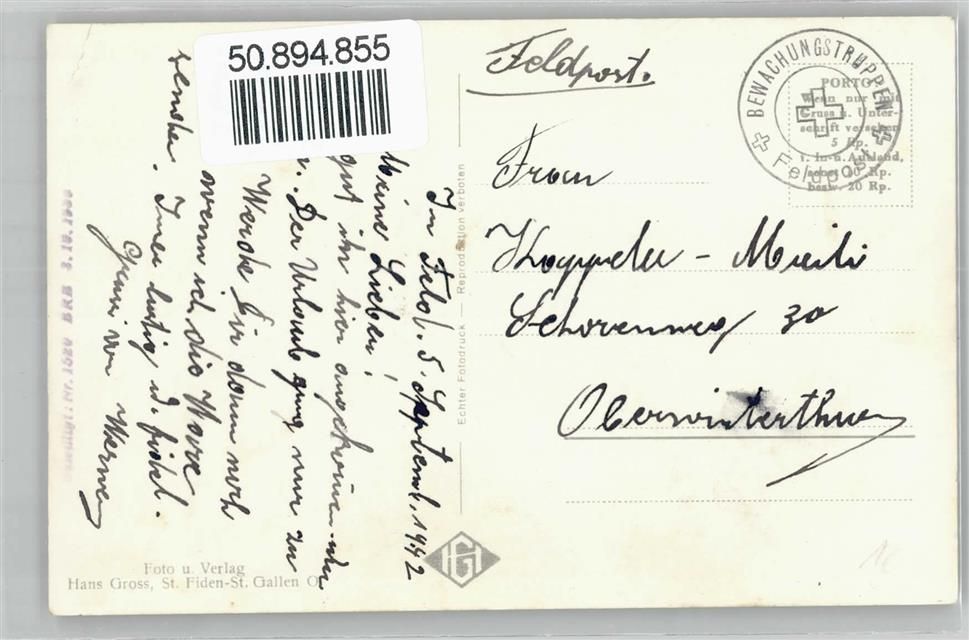 50.894.855
Feldpost.
BEWACHUNGSTRUPPEN
Feldpost
PORTO
Wenn nur mit
Gruss u. Unter-
schrift versehen
5 Rp.
i. In- u. Ausland,
sonst 10 Rp.
bezw. 20 Rp.
Frau
- Meili
Schorenweg 30
Oberwinterthur
Im Feld, 5. Septemb. 1942
Meine Lieben!
gut ihr hier angekommen
. Der Urlaub ging nur zu
Werde Dir dann noch
wenn ich die Ware
. Imer lustig u. fidel.
Grüsse von Werner
Echter Fotodruck — Reproduktion verboten
Nr. 1620 BRB 3.10.1939
Foto u. Verlag
Hans Gross, St. Fiden-St. Gallen O
HG